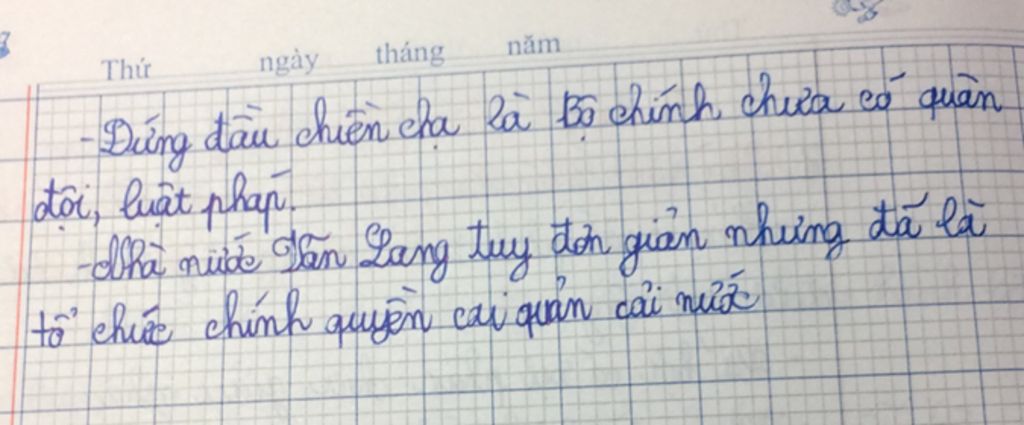 Thứ ngày tháng năm
-Đứng đầu chiền chạ là Bồ chính chưa có quân
đội, luật pháp.
-Nhà nước Văn Lang tuy đơn giản nhưng đã là
tổ chức chính quyền cai quản cải nước